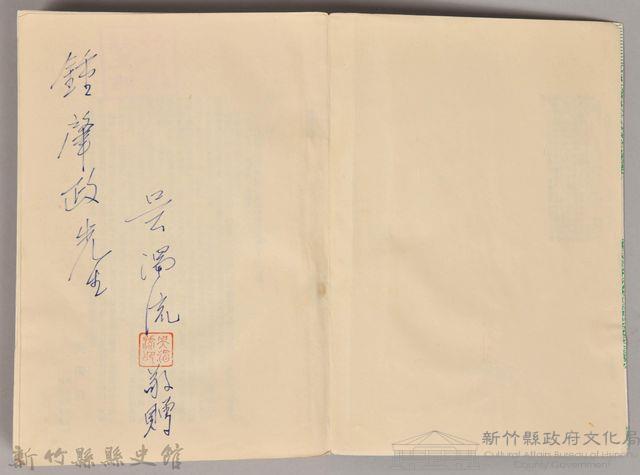 鍾肇政先生
吳濁流
敬贈
新竹縣縣史館
新竹縣政府文化局
Cultural Affairs Bureau of Hsinchu
County Government